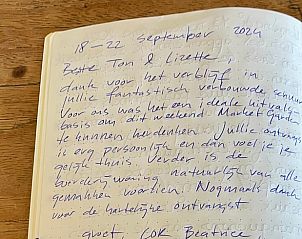 18-22 september 2024
Beste Ton & Lizette,
dank voor het verblijf in
jullie fantastisch verbouwde schuur
Voor ons was het een ideale uitvals-
basis om dit weekend Market Garden
te kunnen herdenken. Jullie ontvangst
is erg persoonlijk en dan voel je je
gelijk thuis. Verder is de
boerderijwoning natuurlijk van alle
gemakken voorzien. Nogmaals dank
voor de hartelijke ontvangst
groet, COR Beatrice